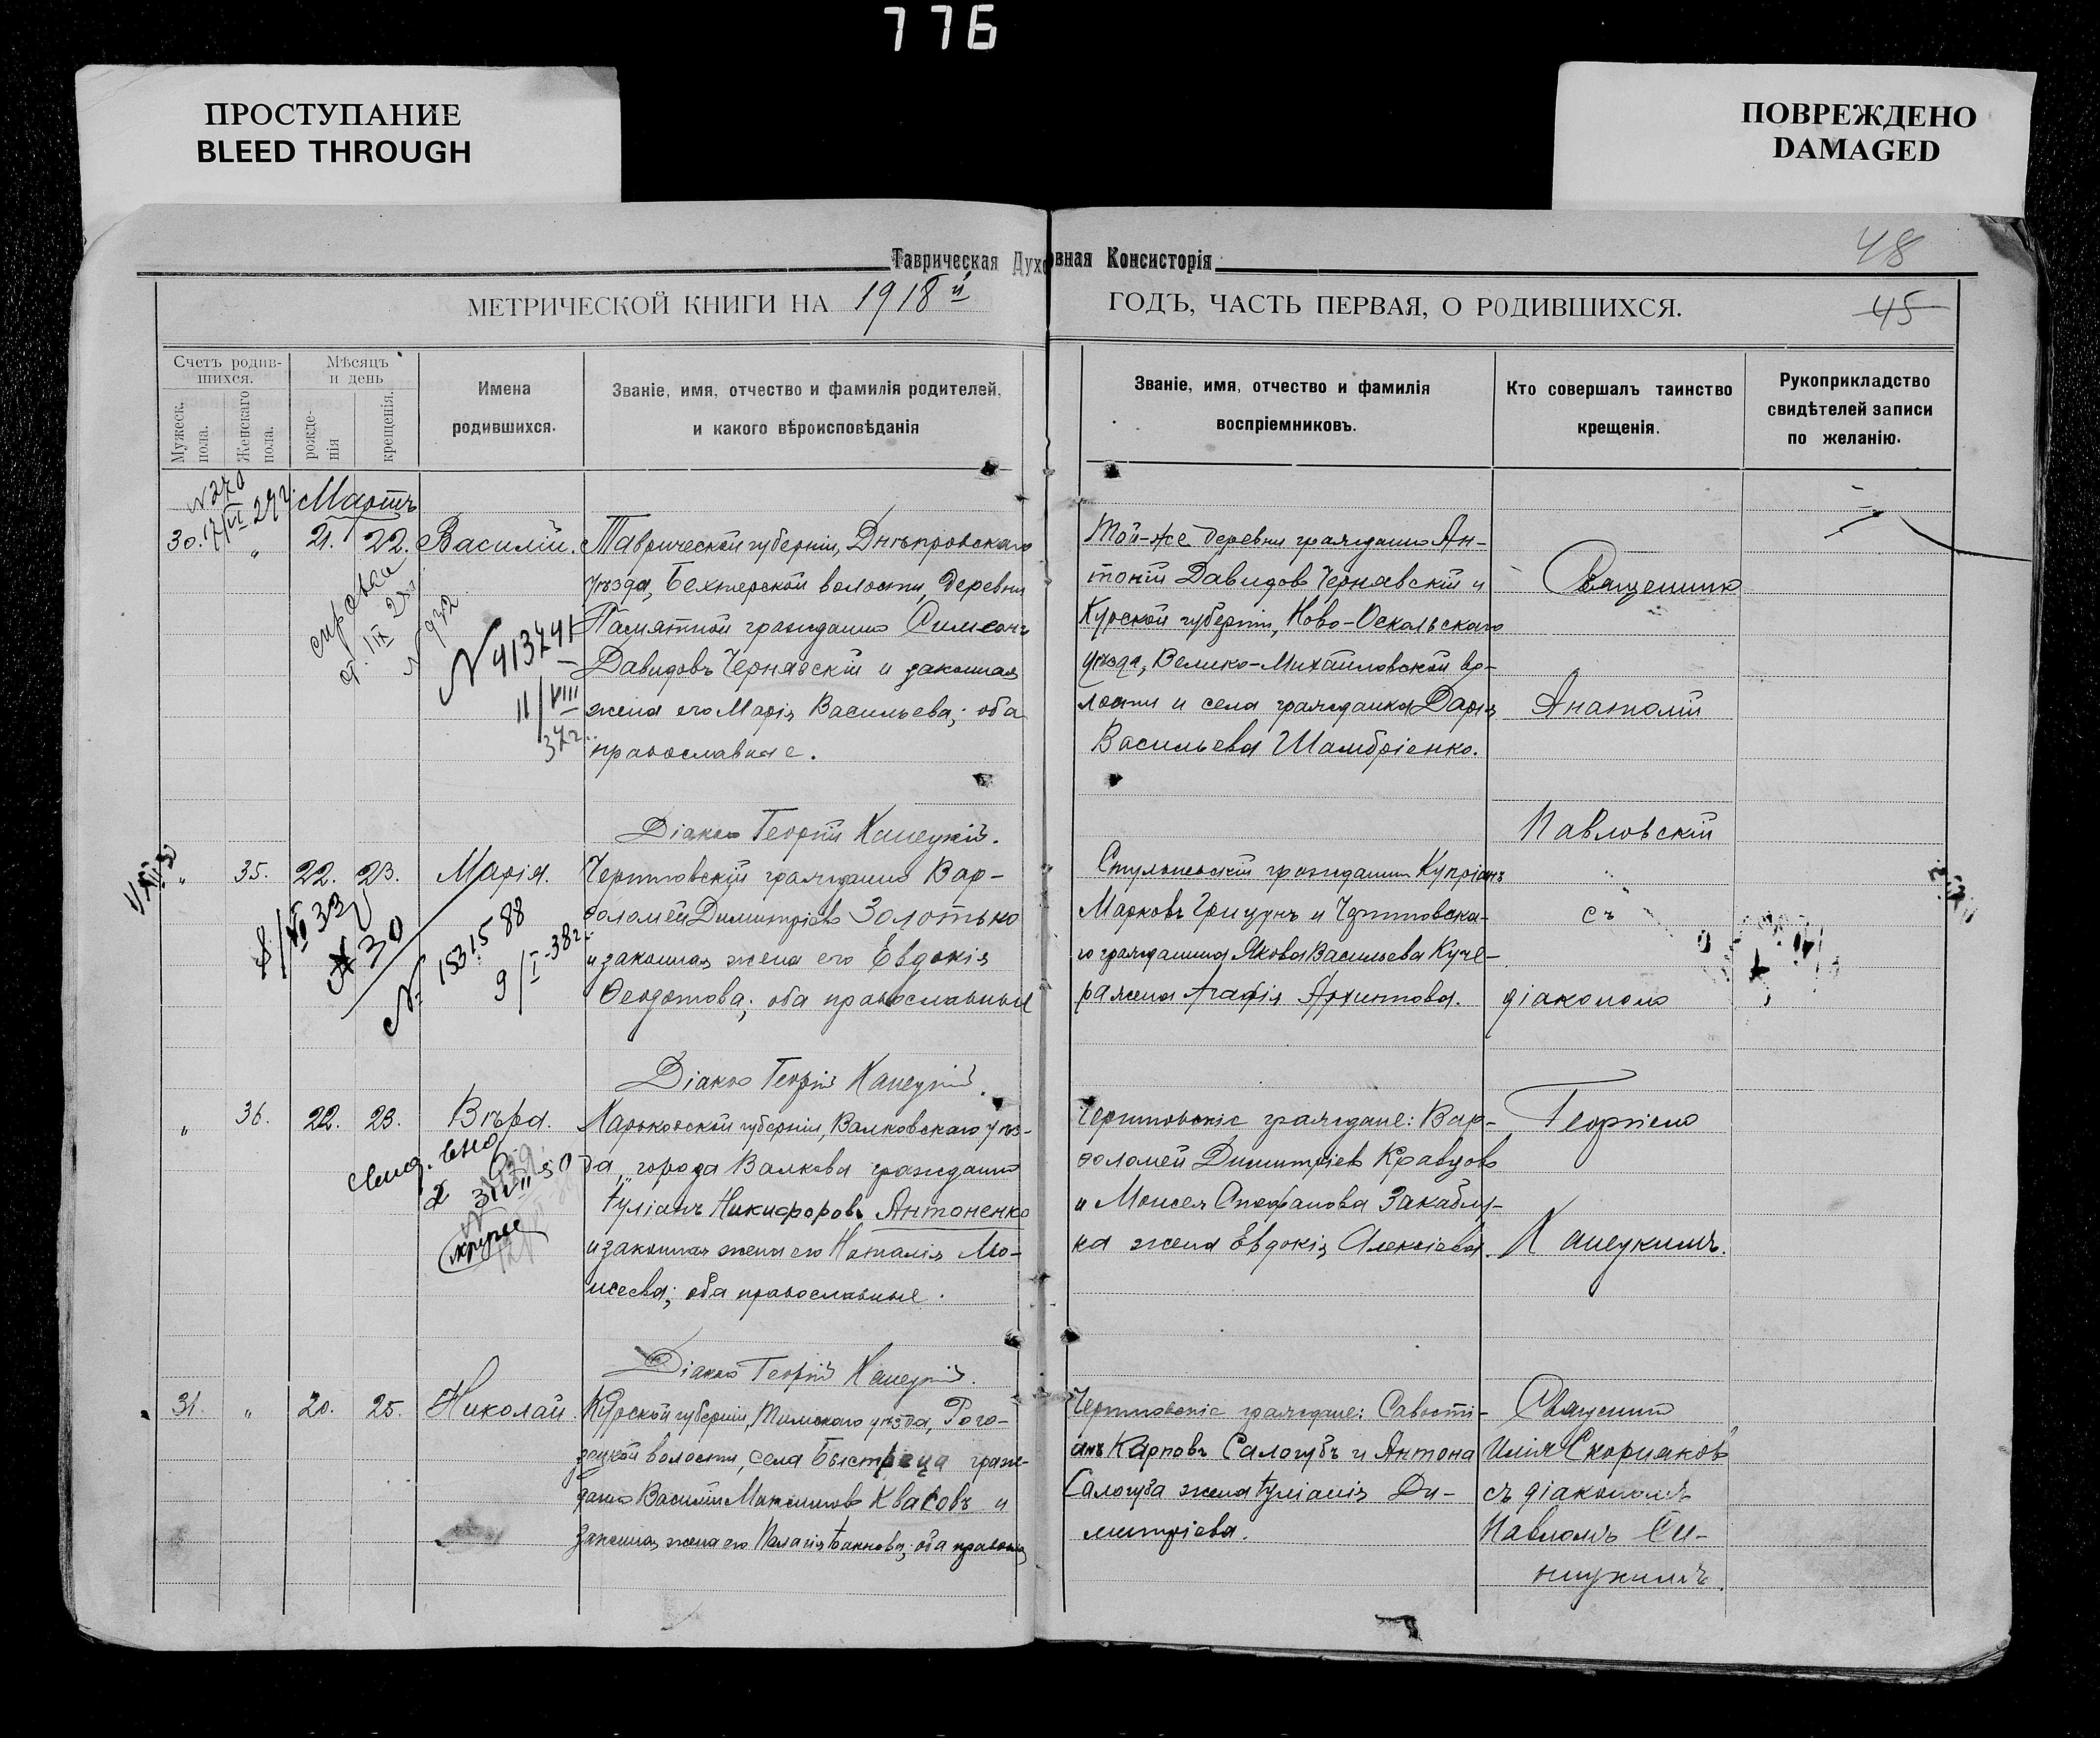 776
ПРОСТУПАНИЕ
BLEED THROUGH
ПОВРЕЖДЕНО
DAMAGED
Таврическая Духовная Консисторія
48
МЕТРИЧЕСКОЙ КНИГИ НА 1918й ГОДЪ, ЧАСТЬ ПЕРВАЯ, О РОДИВШИХСЯ.
45
Счетъ родив-
шихся.
Мужеск. пола.
Женскаго пола.
Мѣсяцъ
и день
рожде-
нія
крещенія.
Имена
родившихся.
Званіе, имя, отчество и фамилія родителей,
и какого вѣроисповѣданія
Званіе, имя, отчество и фамилія
воспріемниковъ.
Кто совершалъ таинство
крещенія.
Рукоприкладство
свидѣтелей записи
по желанію.
N 270
17/VI 27г.
Мартъ
30. " 21. 22. Василій.
справка
от. 1 IX 28г.
N 932
N 413241
11/VIII
37г.
Таврической губерніи, Днѣпровскаго
уѣзда, Бехтерской волости, деревни
Памятной гражданинъ Симеонъ
Давидовъ Чернявскій и законная
жена его Марія Васильева; оба
православные.
Діаконъ Георгій Капецкій.
Той-же деревни гражданинъ Ан-
тоній Давидовъ Чернявскій и
Курской губерніи, Ново-Оскольскаго
уѣзда, Велико-Михайловской во-
лости и села гражданка Дарія
Васильева Шамбріенко.
Священникъ
Анатолій
Павловскій
съ
діакономъ
Георгіемъ
Капецкимъ.
" 35. 22. 23. Марія.
8/XII 33
N 15315 88
9/I-38г.
Черттовскій гражданинъ Вар-
ѳоломей Димитріевъ Золотько
и законная жена его Евдокія
Ѳеодотова; оба православные
Діаконъ Георгій Капецкій.
гражданинъ Купріанъ
Марковъ Грицунъ и
го гражданина Якова Васильева Куче-
ра жена Агафія Архипова.
" 36. 22. 23. Вѣра.
Харьковской губерніи, Валковскаго уѣз-
да, города Валкова гражданинъ
Іуліанъ Никифоровъ Антоненко
и законная жена его Наталія Мо-
исеева; оба православные.
Діаконъ Георгій Капецкій.
граждане: Вар-
ѳоломей Димитріевъ Кравцовъ
и Моисея Стефанова Закаблу-
ка жена Евдокія Алексіева.
31. " 20. 25. Николай.
Курской губерніи, Тимскаго уѣзда, Рого-
зецкой волости, села Быстреца граж-
данинъ Василій Максимовъ Квасовъ и
Законная жена его Пелагія; оба правосл.
граждане: Савасті-
анъ Карповъ Салогубъ и Антона
Салогуба жена Іуліанія Ди-
митріева.
Священникъ
Илія Скорняковъ
съ діакономъ
Павломъ Си-